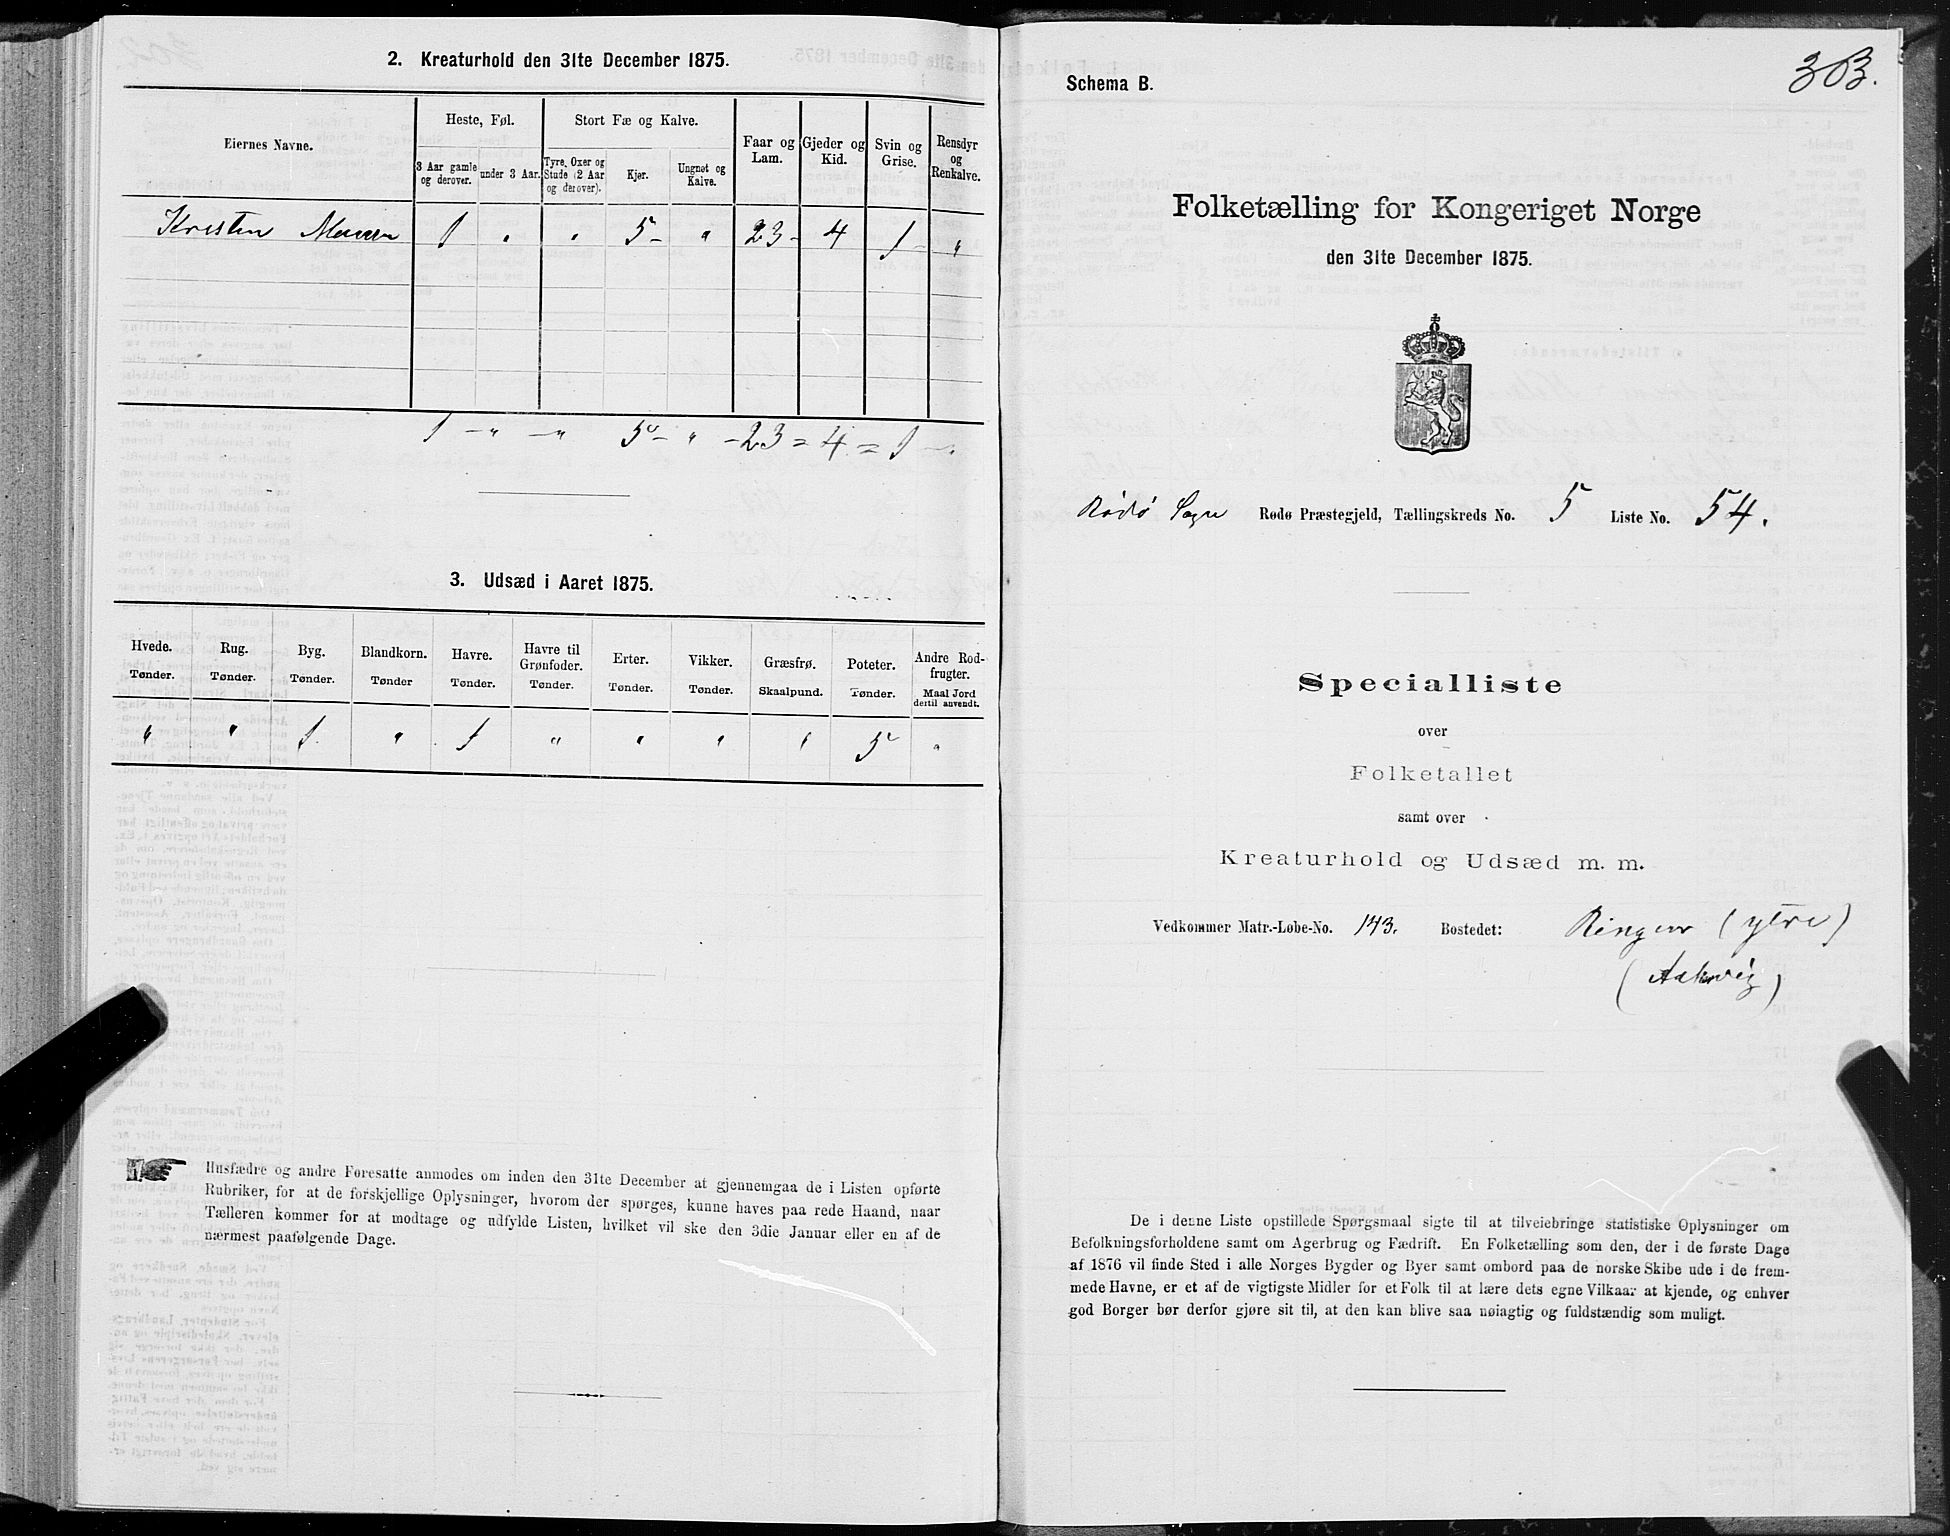 2. Kreaturhold den 31te December 1875.
Eiernes Navne.
Heste, Føl.
Stort Fæ og Kalve.
3 Aar gamle og derover.
under 3 Aar.
Tyre, Oxer og Stude (2 Aar og derover).
Kjør.
Ungnøt og Kalve.
Faar og Lam.
Gjeder og Kid.
Svin og Grise.
Rensdyr og Renkalve.
Kristen 1 " " 5 - " 23 - 4 1 "
1 - " - " 5 - " - 23 = 4 = 1 - "
3. Udsæd i Aaret 1875.
Hvede. Rug. Byg. Blandkorn. Havre. Havre til Grønfoder. Erter. Vikker. Græsfrø. Poteter. Andre Rodfrugter.
Tønder. Tønder. Tønder. Tønder Tønder. Tønder. Tønder. Tønder. Skaalpund. Tønder. Maal Jord dertil anvendt.
" " 1 " 1 " " " " 5 "
Husfædre og andre Foresatte anmodes om inden den 31te December at gjennemgaa de i Listen opførte
Rubriker, for at de forskjellige Oplysninger, hvorom der spørges, kunne haves paa rede Haand, naar
Tælleren kommer for at modtage og udfylde Listen, hvilket vil ske den 3die Januar eller en af de
nærmest paafølgende Dage.
303.
Schema B.
Folketælling for Kongeriget Norge
den 31te December 1875.
Rødø Sogn Rødø Præstegjeld, Tællingskreds No. 5 Liste No. 54.
Specialliste
over
Folketallet
samt over
Kreaturhold og Udsæd m. m.
Vedkommer Matr.-Løbe-No. 143. Bostedet: Ringen (ytre)
(Aakvig)
De i denne Liste opstillede Spørgsmaal sigte til at tilveiebringe statistiske Oplysninger om
Befolkningsforholdene samt om Agerbrug og Fædrift. En Folketælling som den, der i de første Dage
af 1876 vil finde Sted i alle Norges Bygder og Byer samt ombord paa de norske Skibe ude i de frem-
mede Havne, er et af de vigtigste Midler for et Folk til at lære dets egne Vilkaar at kjende, og enhver
god Borger bør derfor gjøre sit til, at den kan blive saa nøiagtig og fuldstændig som muligt.